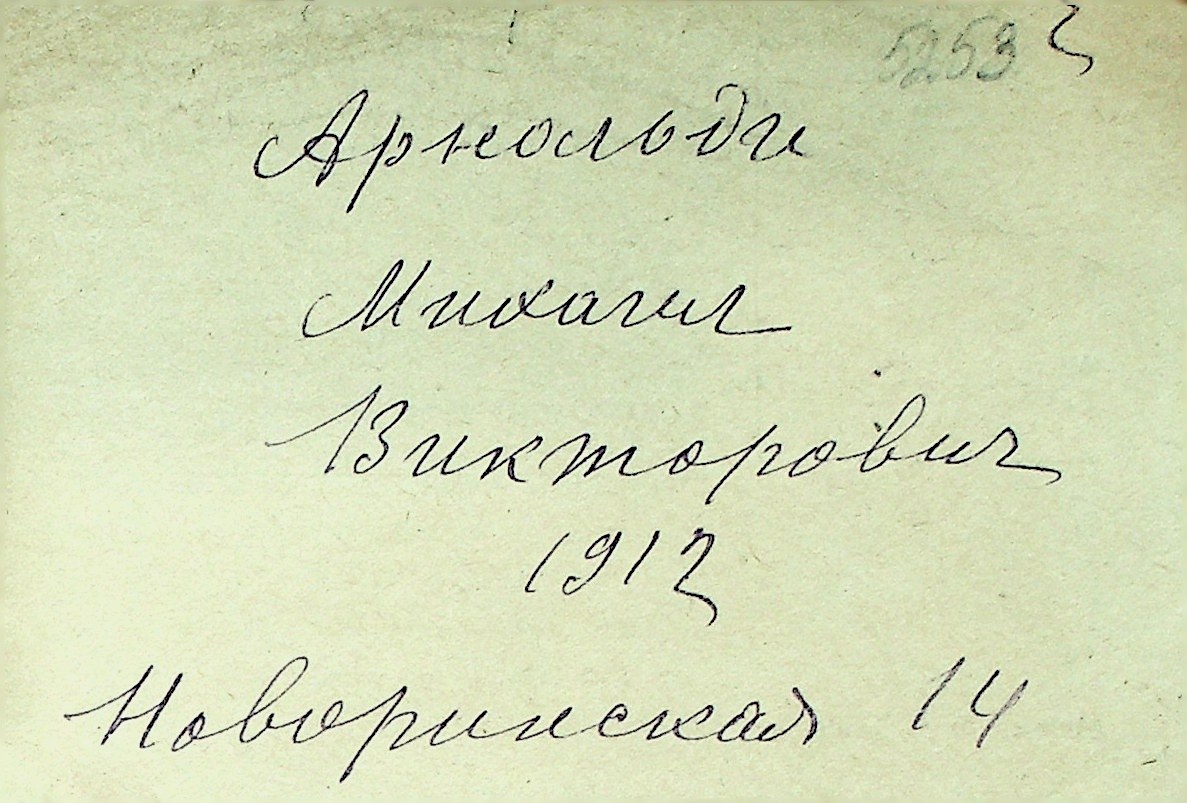 5253 2
Арнольди
Михаил
Викторович
1912
Новоринская 14